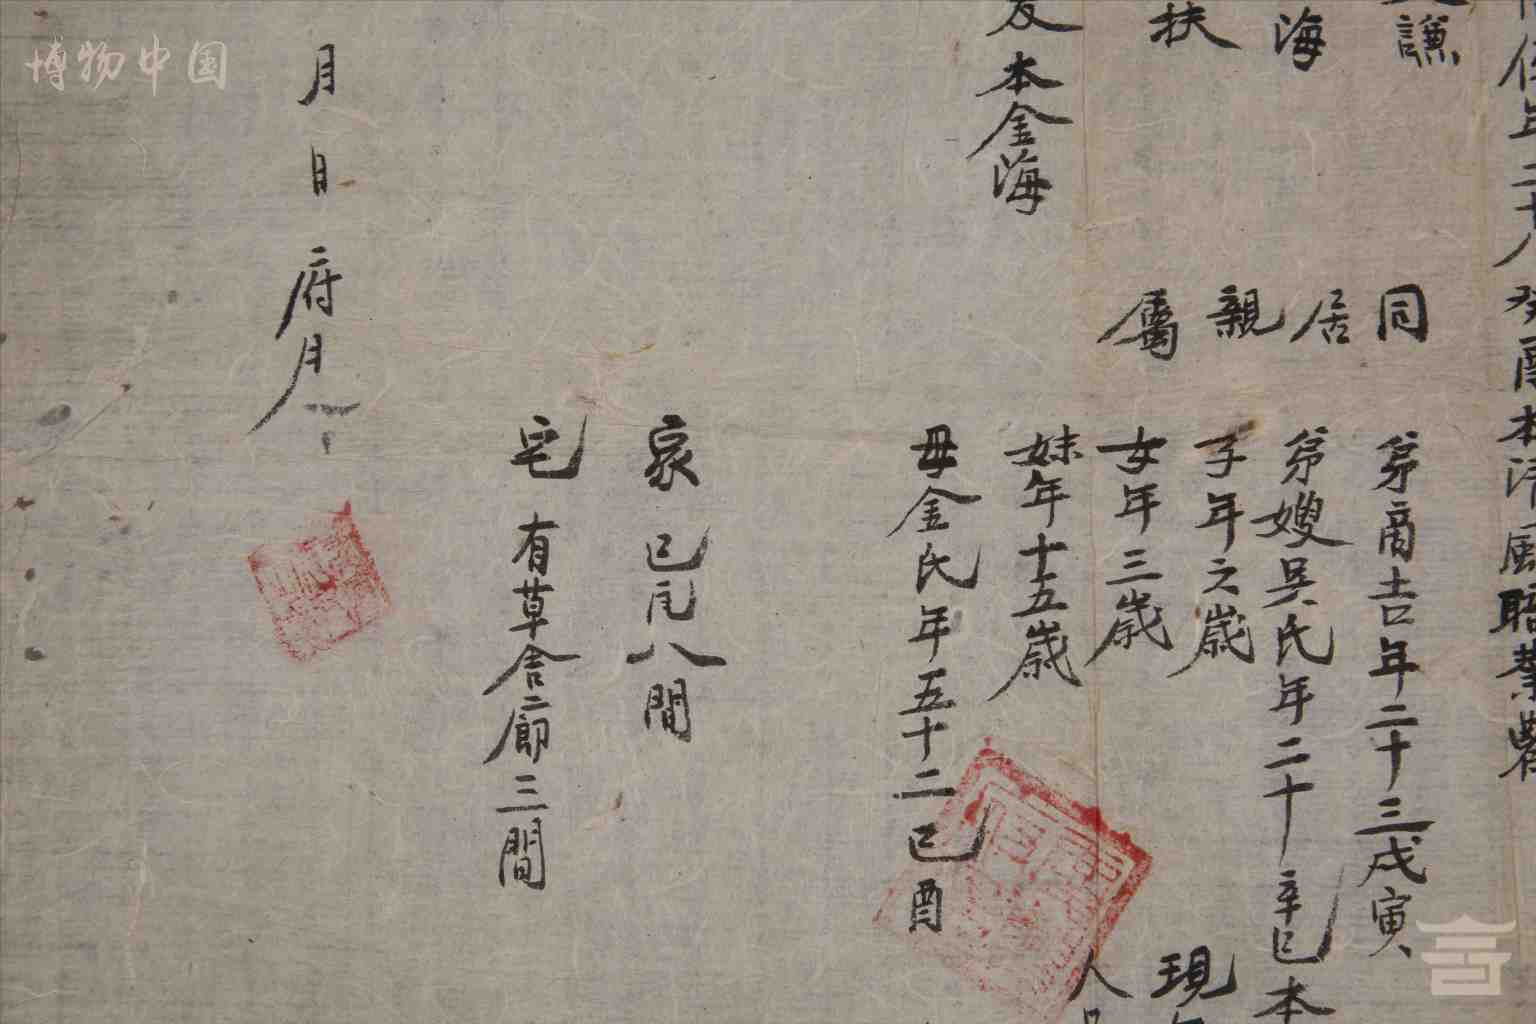 年二十八癸酉本清風職業農
謙
海
扶
本金海
同居親屬
弟商吉年二十三戊寅
弟嫂吳氏年二十辛巳本
子年六歲
女年三歲
妹年十五歲
母金氏年五十二己酉
現
人
家 已瓦八間
宅 有草舍廊三間
月 日 府尹
博物中国